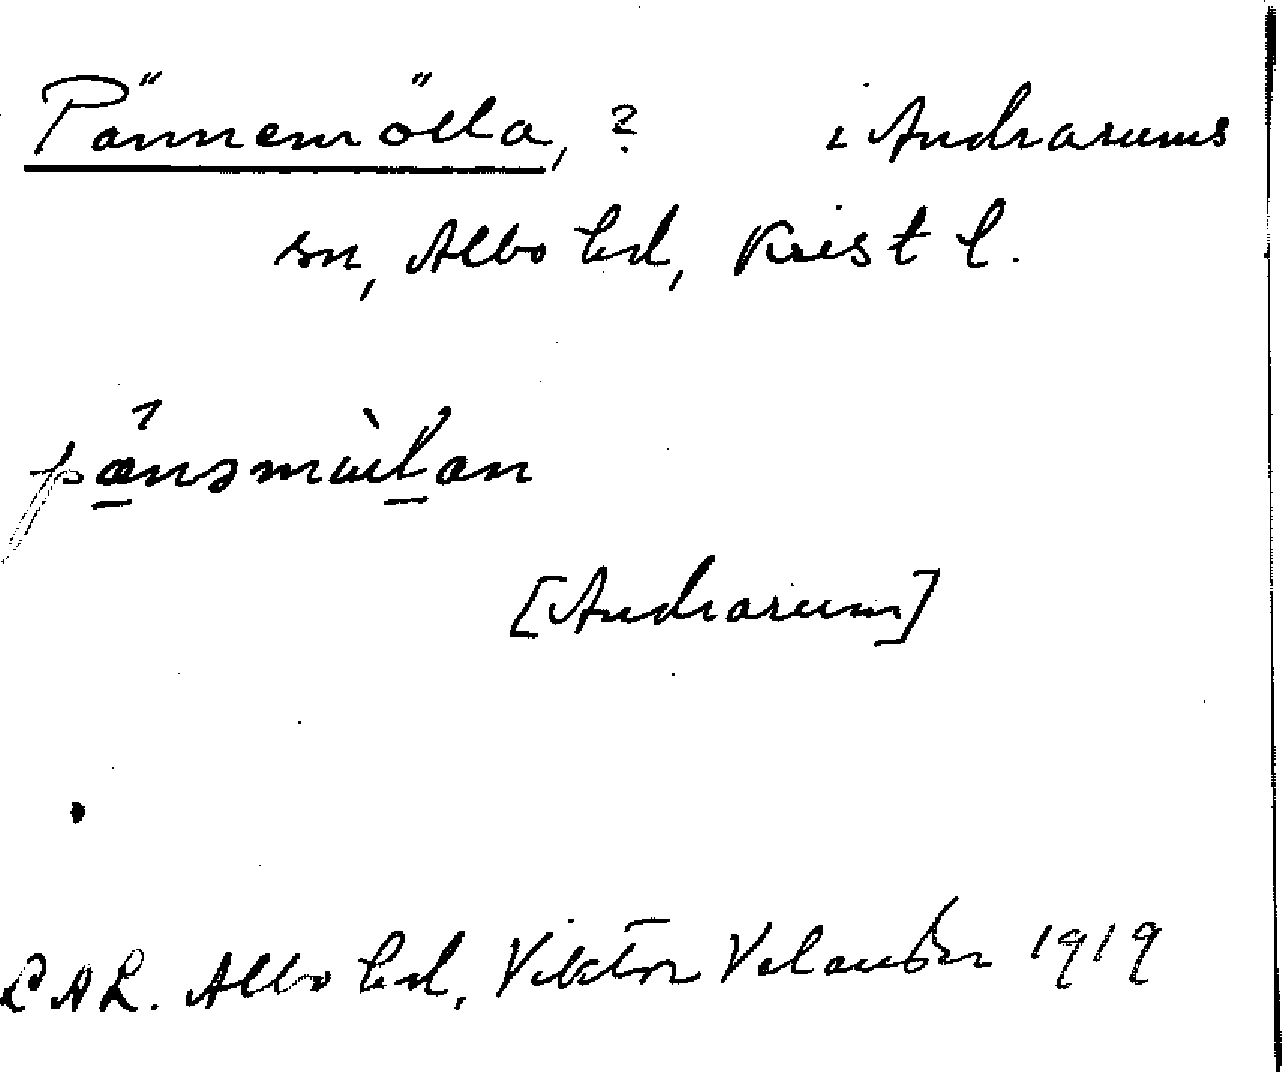 Pännemölla, ? i Andrarums
sn, Albo hd, Krist l.
pänəmöllan
[Andrarum]
LAL. Albo hd, Viktor Velander 1919